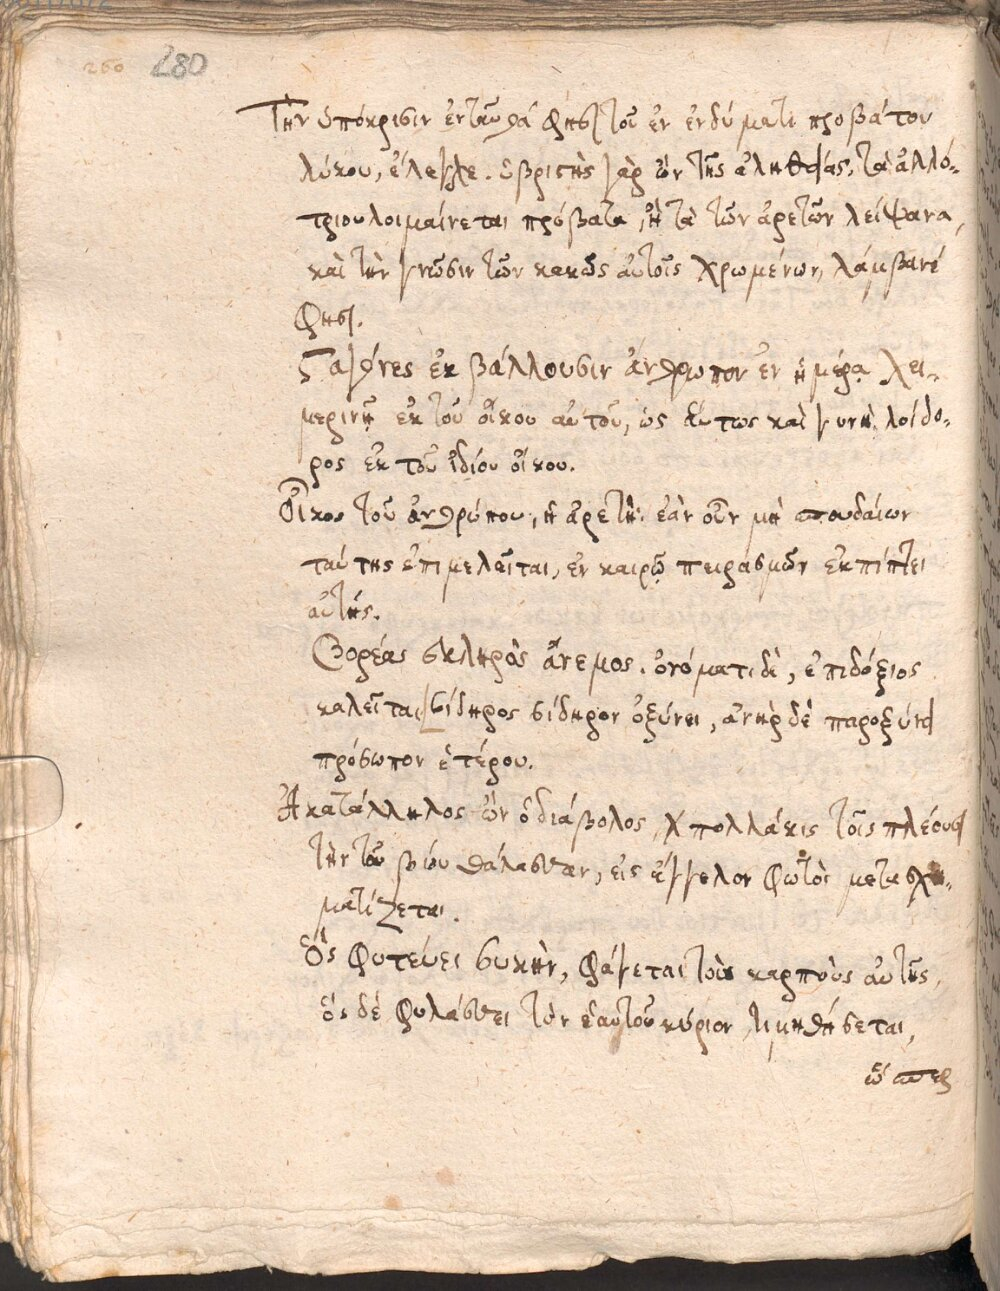 260 280
Τὴν ὑπόκρισιν ἐνταῦθά φησι τοῦ ἐν ἐνδύματι προβάτου
λύκου, ἔλεγξε. ὑβριστὴς γὰρ ὢν τῆς ἀληθείας, τὰ ἀλλό-
τρια λοιμαίνεται πρόβατα, ἢ τὰ τῶν ἀρετῶν λείψανα,
καὶ τὴν γνῶσιν τῶν κακῶς αὐτοῖς χρωμένων, λάμβανέ
φησι.
Σταγόνες ἐκβάλλουσιν ἄνθρωπον ἐν ἡμέρᾳ χει-
μερινῇ ἐκ τοῦ οἴκου αὐτοῦ, ὡς αὕτως καὶ γυνὴ λοίδο-
ρος ἐκ τοῦ ἰδίου οἴκου.
Οἶκος τοῦ ἀνθρώπου, ἡ ἀρετὴ. ἐὰν οὖν μὴ σπουδαίων
ταύτης ἐπιμελεῖται, ἐν καιρῷ πειρασμῶν ἐκπίπτει
αὐτῆς.
Βορέας σκληρὸς ἄνεμος. ὀνόματι δὲ, ἐπιδέξιος
καλεῖται, σίδηρος σίδηρον ὀξύνει, ἀνὴρ δὲ παροξύνει
πρόσωπον ἑτέρου.
Ἀκατάλληλος ὢν ὁ διάβολος, πολλάκις τοῖς πλέουσι
τὴν τοῦ βίου θάλασσαν, εἰς ἄγγελον φωτὸς μετασχη-
ματίζεται.
Ὃς φυτεύει συκῆν, φάγεται τοὺς καρποὺς αὐτῆς,
ὃς δὲ φυλάσσει τὸν ἑαυτοῦ κύριον τιμηθήσεται,
ὥσπερ